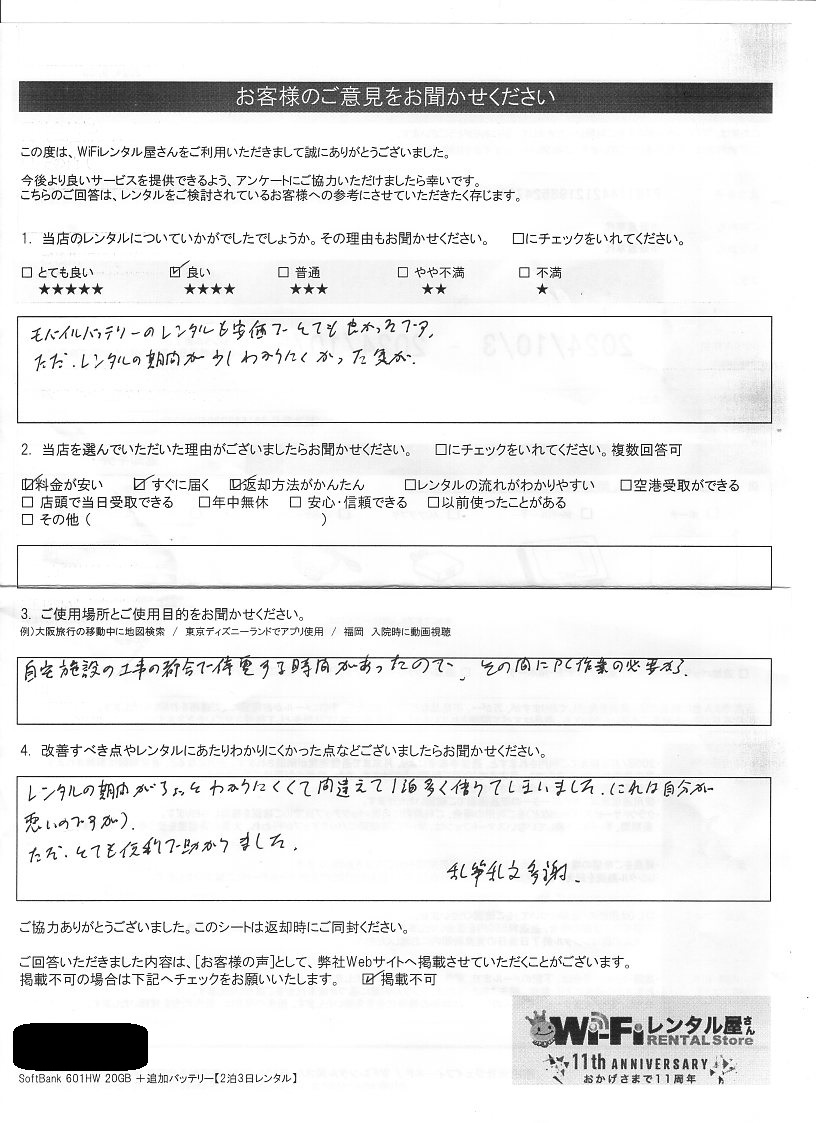 お客様のご意見をお聞かせください
この度は、WiFiレンタル屋さんをご利用いただきまして誠にありがとうございました。
今後より良いサービスを提供できるよう、アンケートにご協力いただけましたら幸いです。
こちらのご回答は、レンタルをご検討されているお客様への参考にさせていただきたく存じます。
1. 当店のレンタルについていかがでしたでしょうか。その理由もお聞かせください。 □にチェックをいれてください。
□ とても良い ☑ 良い □ 普通 □ やや不満 □ 不満
★★★★★ ★★★★ ★★★ ★★ ★
モバイルバッテリーのレンタルも安価でとても良かったです。
ただ、レンタルの期間が少しわかりにくかった気が。
2. 当店を選んでいただいた理由がございましたらお聞かせください。 □にチェックをいれてください。複数回答可
☑料金が安い ☑すぐに届く ☑返却方法がかんたん □レンタルの流れがわかりやすい □空港受取ができる
□ 店頭で当日受取できる □年中無休 □ 安心・信頼できる □以前使ったことがある
□ その他 ( )
3. ご使用場所とご使用目的をお聞かせください。
例)大阪旅行の移動中に地図検索 / 東京ディズニーランドでアプリ使用 / 福岡 入院時に動画視聴
自宅施設の工事の都合で停電する時間があったので、その間にPC作業の必要から。
4. 改善すべき点やレンタルにあたりわかりにくかった点などございましたらお聞かせください。
レンタルの期間がちょっとわかりにくくて間違えて1泊多く借りてしまいました。(これは自分が
悪いのですが)
ただ、とても便利で助かりました。
乱筆乱文多謝。
ご協力ありがとうございました。このシートは返却時にご同封ください。
ご回答いただきました内容は、[お客様の声]として、弊社Webサイトへ掲載させていただくことがございます。
掲載不可の場合は下記へチェックをお願いいたします。 ☑掲載不可
Wi-Fiレンタル屋さん
RENTAL Store
11th ANNIVERSARY
おかげさまで11周年
SoftBank 601HW 20GB +追加バッテリー【2泊3日レンタル】